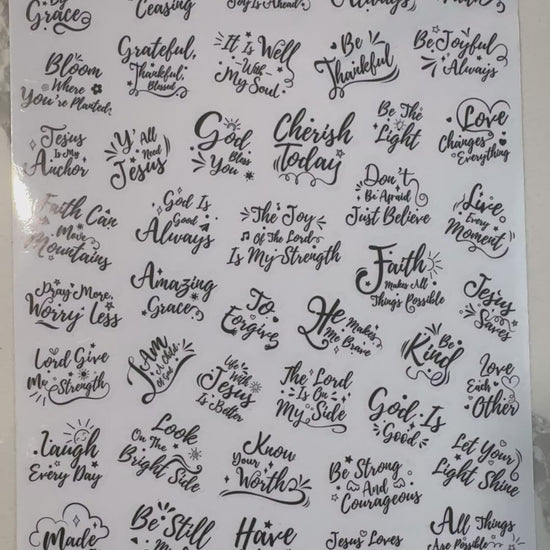 By
Grace
Ceasing
Joy Is Ahead
Always
Bloom
Where
You're Planted
Grateful,
Thankful,
Blessed
It Is Well
With
My Soul
Be
Thankful
Be Joyful
Always
Jesus
Is My
Anchor
Y'All
Need
Jesus
God
Bless
You
Cherish
Today
Be The
Light
Love
Changes
Everything
Faith Can
Move
Mountains
God Is
Good
Always
The Joy
Of The Lord
Is My Strength
Don't
Be Afraid
Just Believe
Live
Every
Moment
Pray More,
Worry Less
Amazing
Grace
To
Forgive
He Makes
Me Brave
Faith
Makes All
Things Possible
Jesus
Saves
Lord Give
Me Strength
I Am
A Child
of God
Life With
Jesus
Is Better
The Lord
Is On
My Side
Be
Kind
God Is
Good
Love
Each
Other
Laugh
Every Day
Look
On The
Bright Side
Know
Your
Worth
Be Strong
And
Courageous
Let Your
Light Shine
Made
Be Still
Have
Jesus Loves
All Things
Are Possible